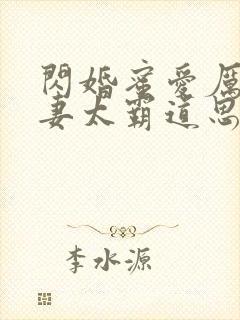 閃婚蜜愛厲
妻太霸道思
李水源